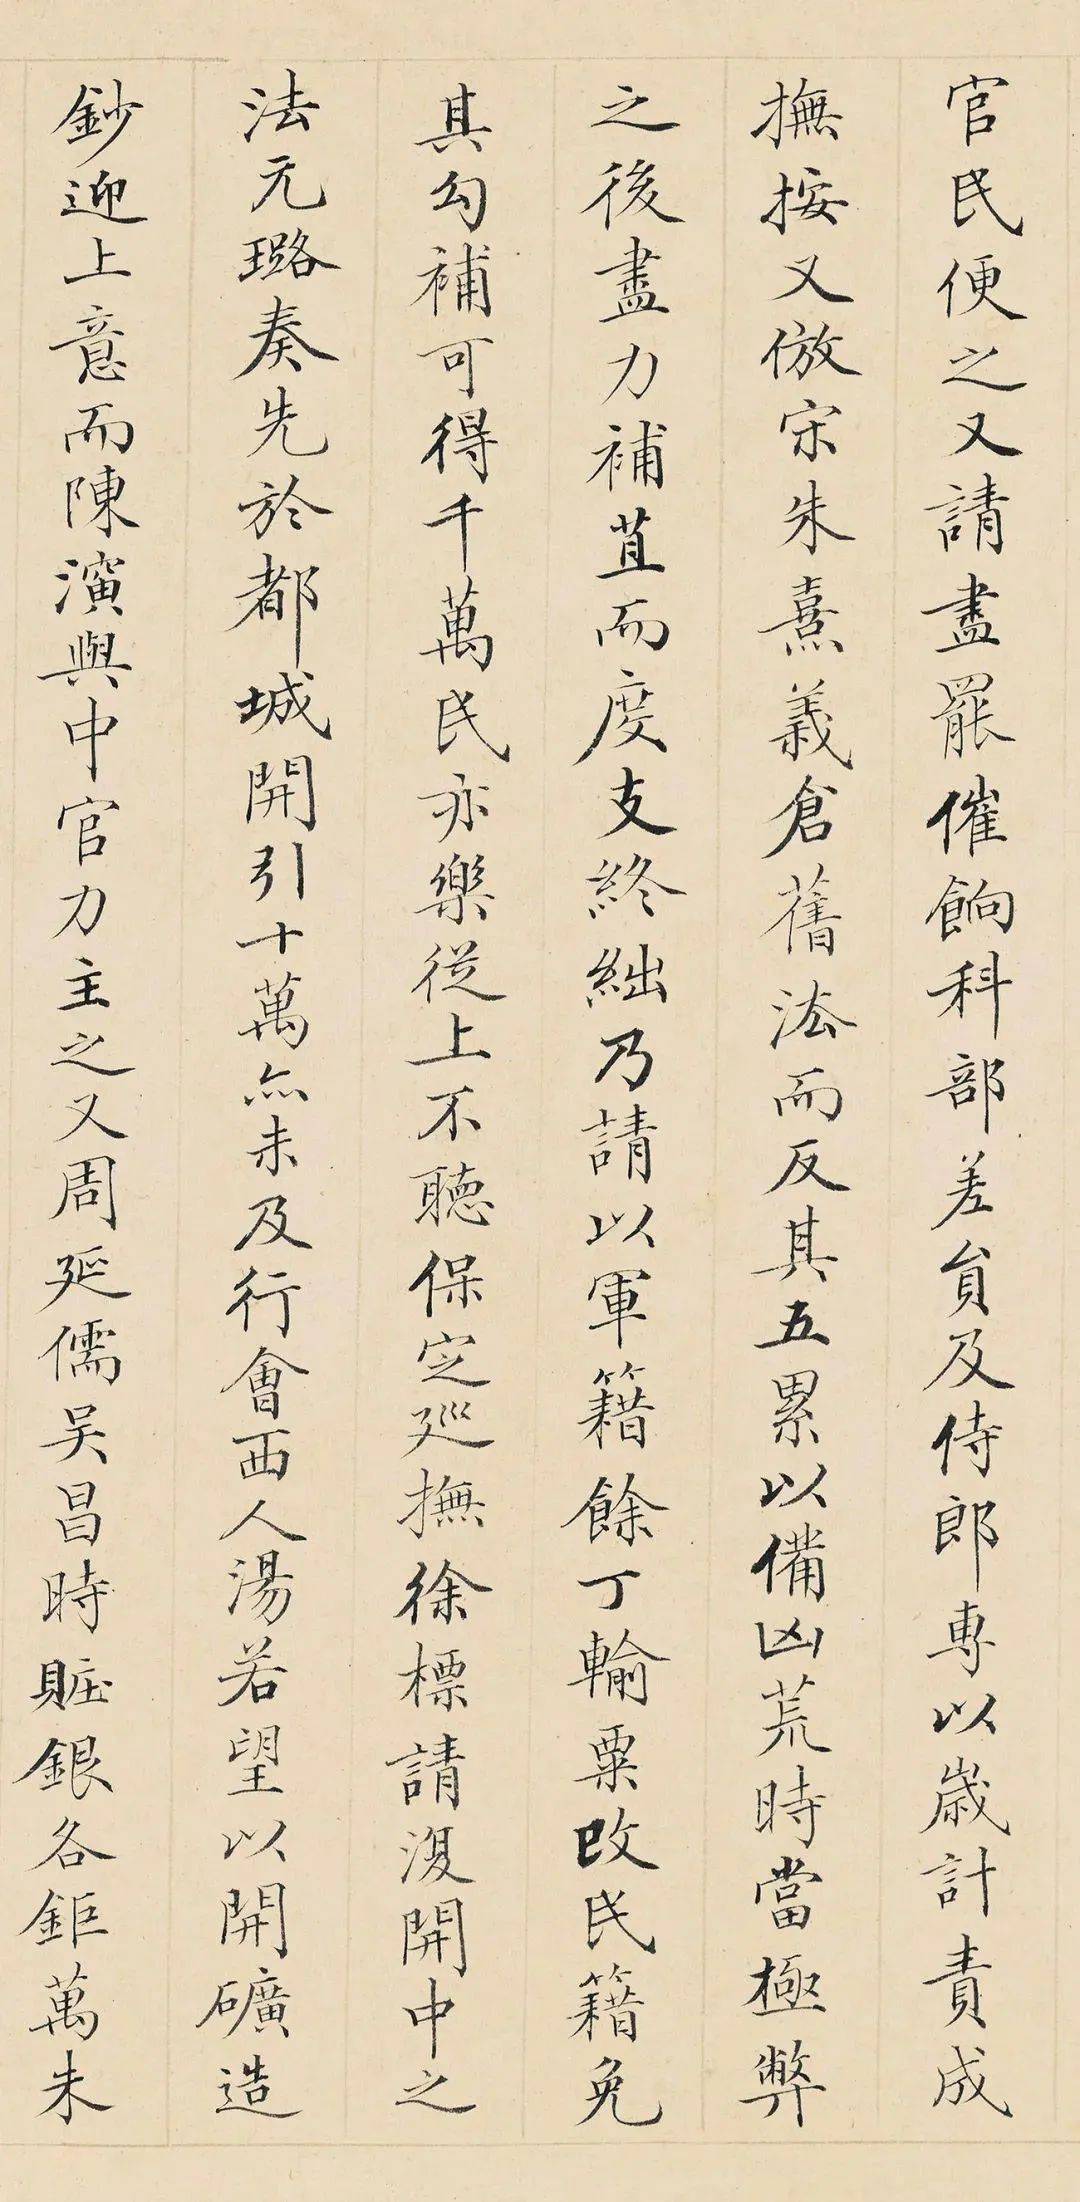 官民便之又請盡罷催餉科部差貟及侍郎專以歲計責成
撫按又倣宋朱熹義倉舊法而反其五累以備凶荒時當極弊
之後盡力補苴而度支終絀乃請以軍籍餘丁輸粟改民籍免
其勾補可得千萬民亦樂從上不聽保定廵撫徐標請復開中之
法元璐奏先於都城開引十萬亦未及行會西人湯若望以開礦造
鈔迎上意而陳演與中官力主之又周延儒吴昌時賍銀各鉅萬未